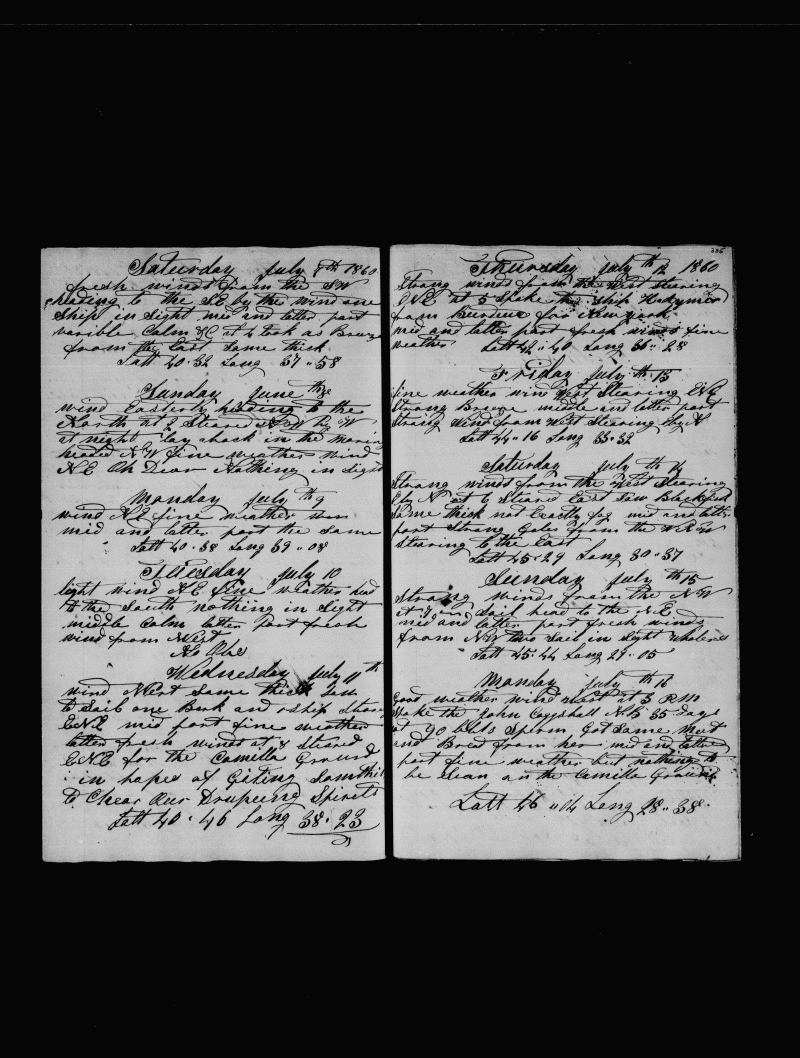 Saturday July 7th 1860
fresh winds from the SW
heading to the SE by the wind one
Ship in Sight mid and latter part
varible Calm &C at 4 took as Breeze
from the East Some thick
Latt 40.32 Long 37"58
Sunday June th 8
wind Easterly heading to the
North at 2 Steared by W
at night lay aback in the morning
headed NW fine weather wind
NE Oh Dear Nothing in Sight
Monday July th 9
wind NE fine weather
mid and latter part the Same
Latt 40.38 Long 39"08
Tuesday July 10
light wind NE fine weather head
to the South nothing in Sight
middle Calm latter Part fresh
wind from West
No Obs
Wednesday July 11th
wind West Some thick Saw
to Sail one Bark and a ship Strong
ENE mid part fine weather
latter fresh winds at 8 Steared
ENE for the Camilla Ground
in hopes of Giting Somthi
to Chear Our Drupeing Spirits
Latt 40.46 Long 38.23
336
Thursday July th 12 1860
Strong winds from the West Stearing
ENE at 5 Spoke the Ship
from for New york
mid and latter part fresh winds fine
weather Latt 42"40 Long 36"28
Friday July th 13
fine weather wind West Stearing ENE
Strong Breeze middle and latter part
Strong wind from West Stearing by N
Latt 44"16 Long 33"32
Saturday July th 14
Strong winds from the West Stearing
E by N at 6 Steared East Saw Blackfish
Some thick not Exactly fog mid and latter
part Strong Gales from the WNW
Stearing to the East
Latt 45"29 Long 30"37
Sunday July th 15
Strong winds from the NW
at 7 Sail head to the NE
mid and latter part fresh winds
from NW two Sail in Sight Whalers
Latt 45"44 Long 29"05
Monday July th 16
Good weather wind West at 3 PM
Spoke the John Coggshall NB 35 days
out 90 bbls Sperm, Got Some Meat
and Bread from her mid and latter
part fine weather but nothing to
be Sean on the Camilla Ground
Latt 46"04 Long 28"38